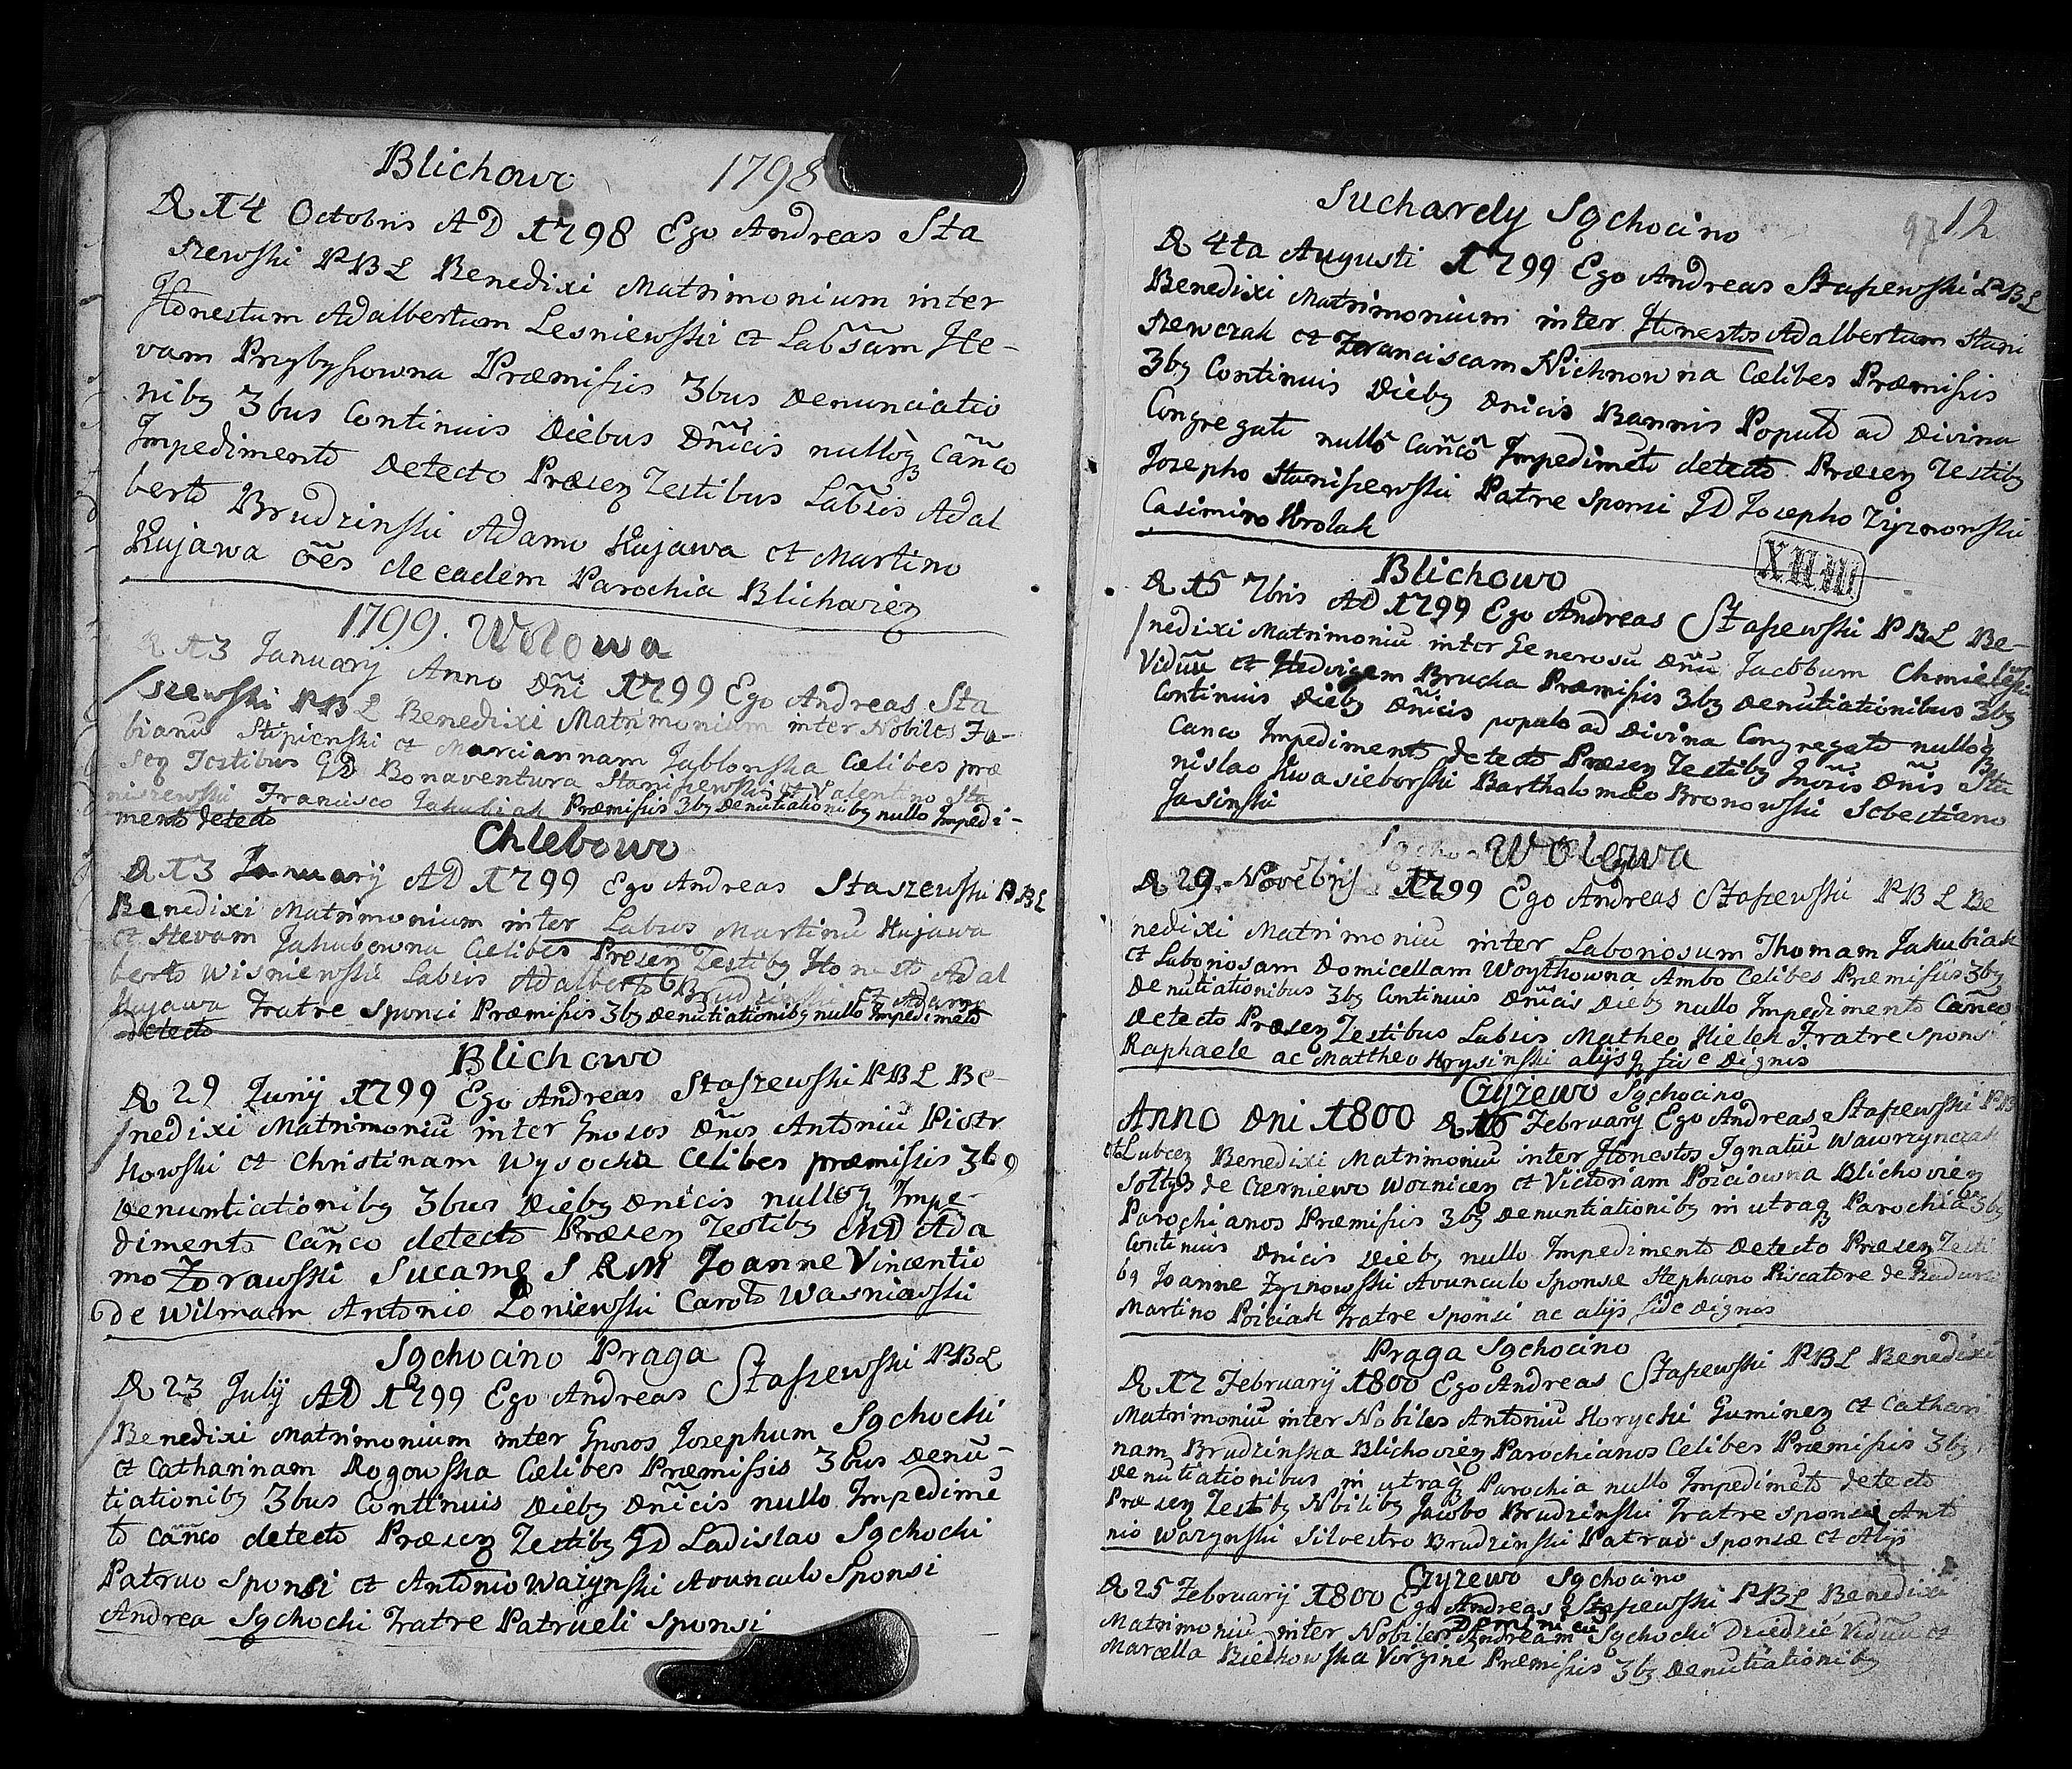 Blichowo 1798
D 14 Octobris AD 1798 Ego Andreas Sta
szewski PBL Benedixi Matrimonium inter
Honestum Adalbertum Lesniewski et Labsam He-
vam Przybyszowna Præmissis 3bus Denunciatio
niby 3bus Continuis Diebus Dñicis nulloq Cañco
Impedimento Detecto Præsez Testibus Labsis Adal
berto Brudzinski Adamo Kujawa et Martino
Kujawa oẽs de eadem Parochia Blichoviez
1799. Wolowa
D 13 January Anno Dñi 1799 Ego Andreas Sta
szewski PBL Benedixi Matrimonium inter Nobiles Fa-
bianũ Stipienski et Marciannam Jablonska Cælibes præ
sez Testibus GD Bonaventura Staniszewski et Valentino Sta
niszewski Francisco Jakubiak Præmissis 3bz Denutiationibz nullo Impedi-
mento detecto
Chlebowo
D 13 January AD 1799 Ego Andreas Staszewski PBL
Benedixi Matrimonium inter Labsos Martinũ Kujawa
et Hevam Jakubowna Celibes Presez Testibz Honesto Adal
berto Wisniewski Labsis Adalberto Brudzinski et Adamo
Kujawa Fratre Sponsi Præmissis 3bz Denutiationibz nullo Impedimeto
detecto
Blichowo
D 29 Junij 1799 Ego Andreas Staszewski PBL Be-
nedixi Matrimoniũ inter Gnosos Dños Antoniũ Piotr
kowski et Christinam Wysocka Celibes præmissis 3bz
Denuntiationibz 3bus Diebz Dnicis nulloq Impe-
dimento Cañco detecto Præsez Testibz MD Ada
mo Zorawski Sucame S R M Joanne Vincentio
de Wilmam Antonio Loniewski Carolo Wasniewski
Sąchocino Praga
D 23 July AD 1799 Ego Andreas Staszewski PBL
Benedixi Matrimonium inter Gnosos Josephum Sąchocki
et Catharinam Rogowska Cælibes Præmissis 3bus Denũ-
tiationibz 3bus Continuis Diebz Dñicis nullo Impedimẽ
to cañco detecto Præsez Testibz GD Ladislao Sąchocki
Patruo Sponsi et Antonio Warynski Avunculo Sponsi
Andrea Sąchocki Fratre Patrueli Sponsi
Suchardy Sąchocino 97 12
D 4ta Augusti 1799 Ego Andreas Staszewski PBL
Benedixi Matrimonium inter Honestos Adalbertum Stani
szewczak et Franciscam Nichnowna Cælibes Præmissis
3bz Continuis Diebz Dnicis Bannis Populo ad Divina
Congregato nullo Cañco Impedimeto detecto Præsez Testibz
Josepho Staniszewski Patre Sponsi GD Josepho Zyznowski
Casimiro Krolak
XII.III
Blichowo
D 15 7bris AD 1799 Ego Andreas Staszewski PBL Be-
nedixi Matrimoniũ inter Generosũ Dñũ Jacobum Chmielewski
Viduũ et Hedvigem Brucka Præmissis 3bz Denutiationibus 3bz
Continuis Diebz Dñicis populo ad Divina Congregato nulloq
Canco Impedimento detecto Præsez Testibz Gnosis Dñis Sta
nislao Kwasieborski Bartholomæo Bronowski Sebestiano
Jasinski
Wolowa
D 29. Novẽbris 1799 Ego Andreas Staszewski PBL Be
nedixi Matrimoniũ inter Laboriosum Thomam Jakubiak
et Laboriosam Domicellam Woytkowna Ambo Celibes Præmissis 3bz
Denutiationibus 3bz Continuis Dñicis Diebz nullo Impedimento Cañco
Detecto Præsez Testibus Labsis Matheo Kielek Fratre Sponsi
Raphaele ac Mattheo Krysinski alijsq fide Dignis
Czyzewo Sąchocino
Anno Dni 1800 D 16 February Ego Andreas Staszewski PB
et Lubcez Benedixi Matrimoniũ inter Honestos Ignatiũ Wawrzynczak
Soltys de Czerniewo Woznicez et Victoriam Pozciowna Blichoviez
Parochianos Præmissis 3bz Denuntiationibz in utraq Parochia 3bz
Continuis Dnicis Diebz nullo Impedimento Detecto Præsez Testi
bz Joanne Zyznowski Avunculo Sponsæ Stephano Piscatore de
Martino Pozciak Fratre Sponsi ac alijs fide Dignis
Praga Sąchocino
D 17 February 1800 Ego Andreas Staszewski PBL Benedixi
Matrimoniũ inter Nobiles Antoniũ Korycki Guminez et Cathari
nam Brudzinska Blichoviez Parochianos Celibes Præmissis 3bz
Denutiationibus in utraq Parochia nullo Impedimeto detecto
Præsez Testibz Nbilibz Jacobo Brudzinski Fratre Sponsæ Anto
nio Warynski Silvestro Brudzinski Patruo Sponsæ et Alijs
Czyzewo Sąchocino
D 25 February 1800 Ego Andreas Staszewski PBL Benedixi
Dominicũ
Matrimoniũ inter Nobiles Andream Sąchocki Dziedzic Viduũ et
Marcella Bielkowska Virginẽ Præmissis 3bz Denutiationibz